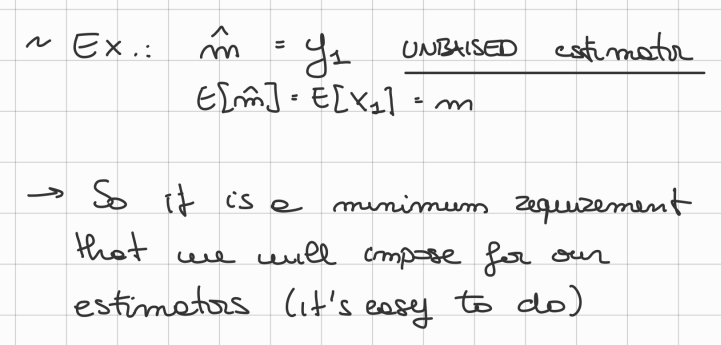 ~ Ex.: m̂ = y₁ UNBAISED estimator
E[m̂] = E[X₁] = m
→ So it is a minimum requirement
that we will impose for our
estimators (it's easy to do)